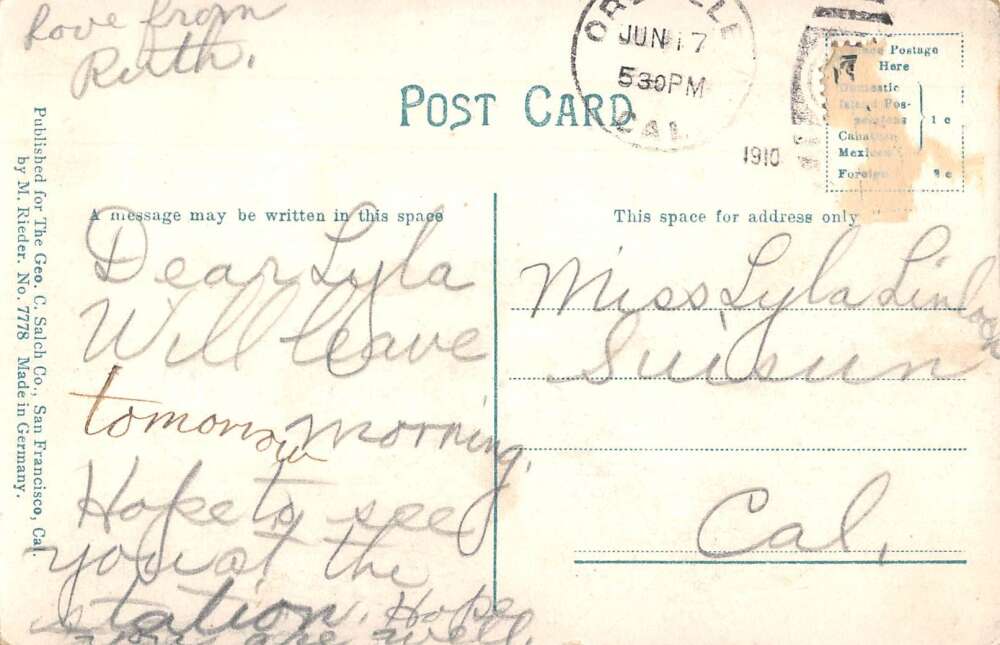 Love from
Ruth.
POST CARD
JUN 17
530PM
CAL.
1910
Postage
Here
Domestic
Island Pos-
sessions
1 c
Foreign
A message may be written in this space
This space for address only
Dear Lyla
Will leave
tomorrow morning.
Hope to see
you at the
station. Hope
you are well.
Miss Lyla
Suisun
Cal.
Published for The Geo. C. Salch Co., San Francisco, Cal.
by M. Rieder. No. 7778 Made in Germany.